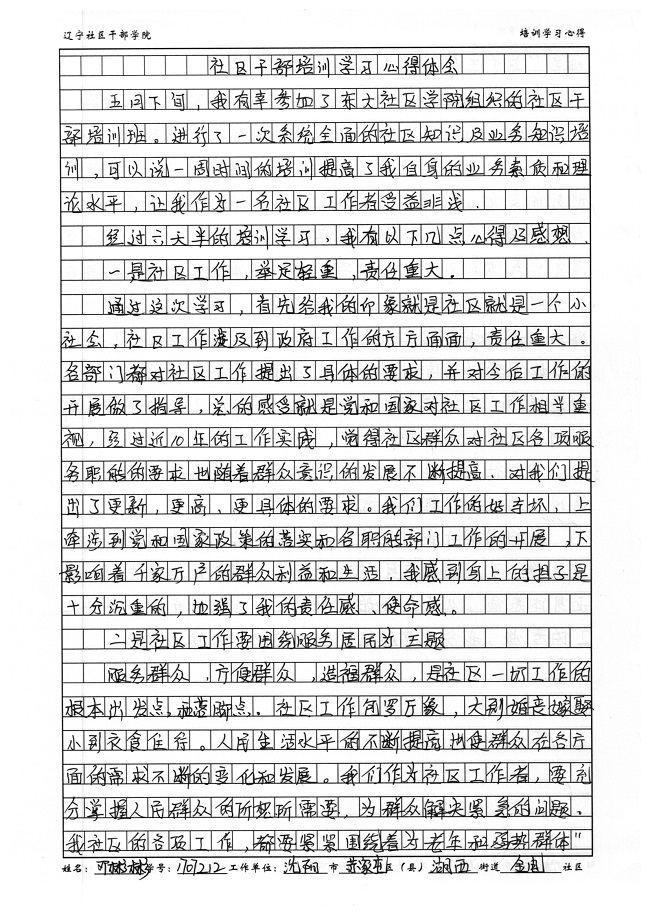 辽宁社区干部学院 培训学习心得
社区干部培训学习心得体会
五月下旬，我有幸参加了东大社区学院组织的社区干
部培训班。进行了一次系统全面的社区知识及业务知识培
训，可以说一周时间的培训提高了我自身的业务素质和理
论水平，让我作为一名社区工作者受益非浅.
经过六天半的培训学习，我有以下几点心得及感想.
一是社区工作，举足轻重，责任重大。
通过这次学习，首先给我的印象就是社区就是一个小
社会，社区工作涉及到政府工作的方方面面，责任重大。
各部门都对社区工作提出了具体的要求，并对今后工作的
开展做了指导，总的感受就是党和国家对社区工作相当重
视，经过近10年的工作实践，觉得社区群众对社区各项服
务职能的要求也随着群众意识的发展不断提高、对我们提
出了更新，更高、更具体的要求。我们工作的好与坏，上
牵涉到党和国家政策的落实和各职能部门工作的开展，下
影响着千家万户的群众利益和生活，我感到身上的担子是
十分沉重的，加强了我的责任感、使命感。
二是社区工作要围绕服务居民为主题
服务群众，方便群众，造福群众，是社区一切工作的
根本出发点和落脚点。社区工作包罗万象，大到婚丧嫁娶
小到衣食住行。人民生活水平的不断提高也使群众在各方
面的需求不断的变化和发展。我们作为社区工作者，要充
分掌握人民群众的所想所需要，为群众解决紧急的问题。
我社区的各项工作，都要紧紧围绕着为老年和弱势群体"
姓名： 学号：170212 工作单位：沈阳 市 苏家屯 区（县） 湖西 街道 金刚 社区